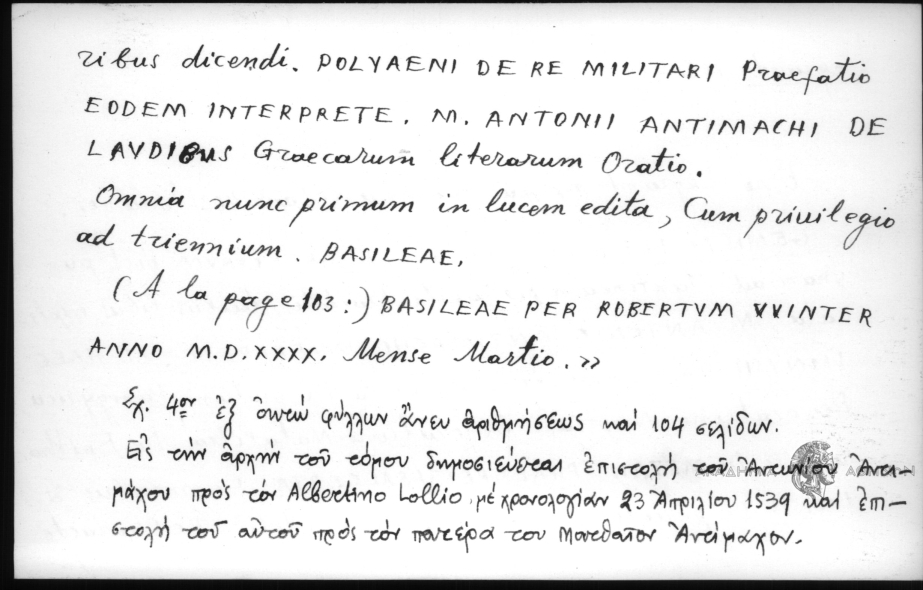 ribus dicendi. POLYAENI DE RE MILITARI Praefatio
EODEM INTERPRETE. M. ANTONII ANTIMACHI DE
LAVDIBUS Graecarum literarum Oratio.
Omnia nunc primum in lucem edita, Cum priuilegio
ad triennium. BASILEAE,
(A la page 103:) BASILEAE PER ROBERTVM VVINTER
ANNO M.D.XXXX. Mense Martio.»
Σχ. 4ον ἐξ ὀκτὼ φύλλων ἄνευ ἀριθμήσεως καὶ 104 σελίδων.
Εἰς τὴν ἀρχὴν τοῦ τόμου δημοσιεύεται ἐπιστολὴ τοῦ Ἀντωνίου Ἀντι-
μάχου πρὸς τὸν Albertino Lollio μὲ χρονολογίαν 23 Ἀπριλίου 1539 καὶ ἐπι-
στολὴ τοῦ αὐτοῦ πρὸς τὸν πατέρα του Ἀντίμαχον.